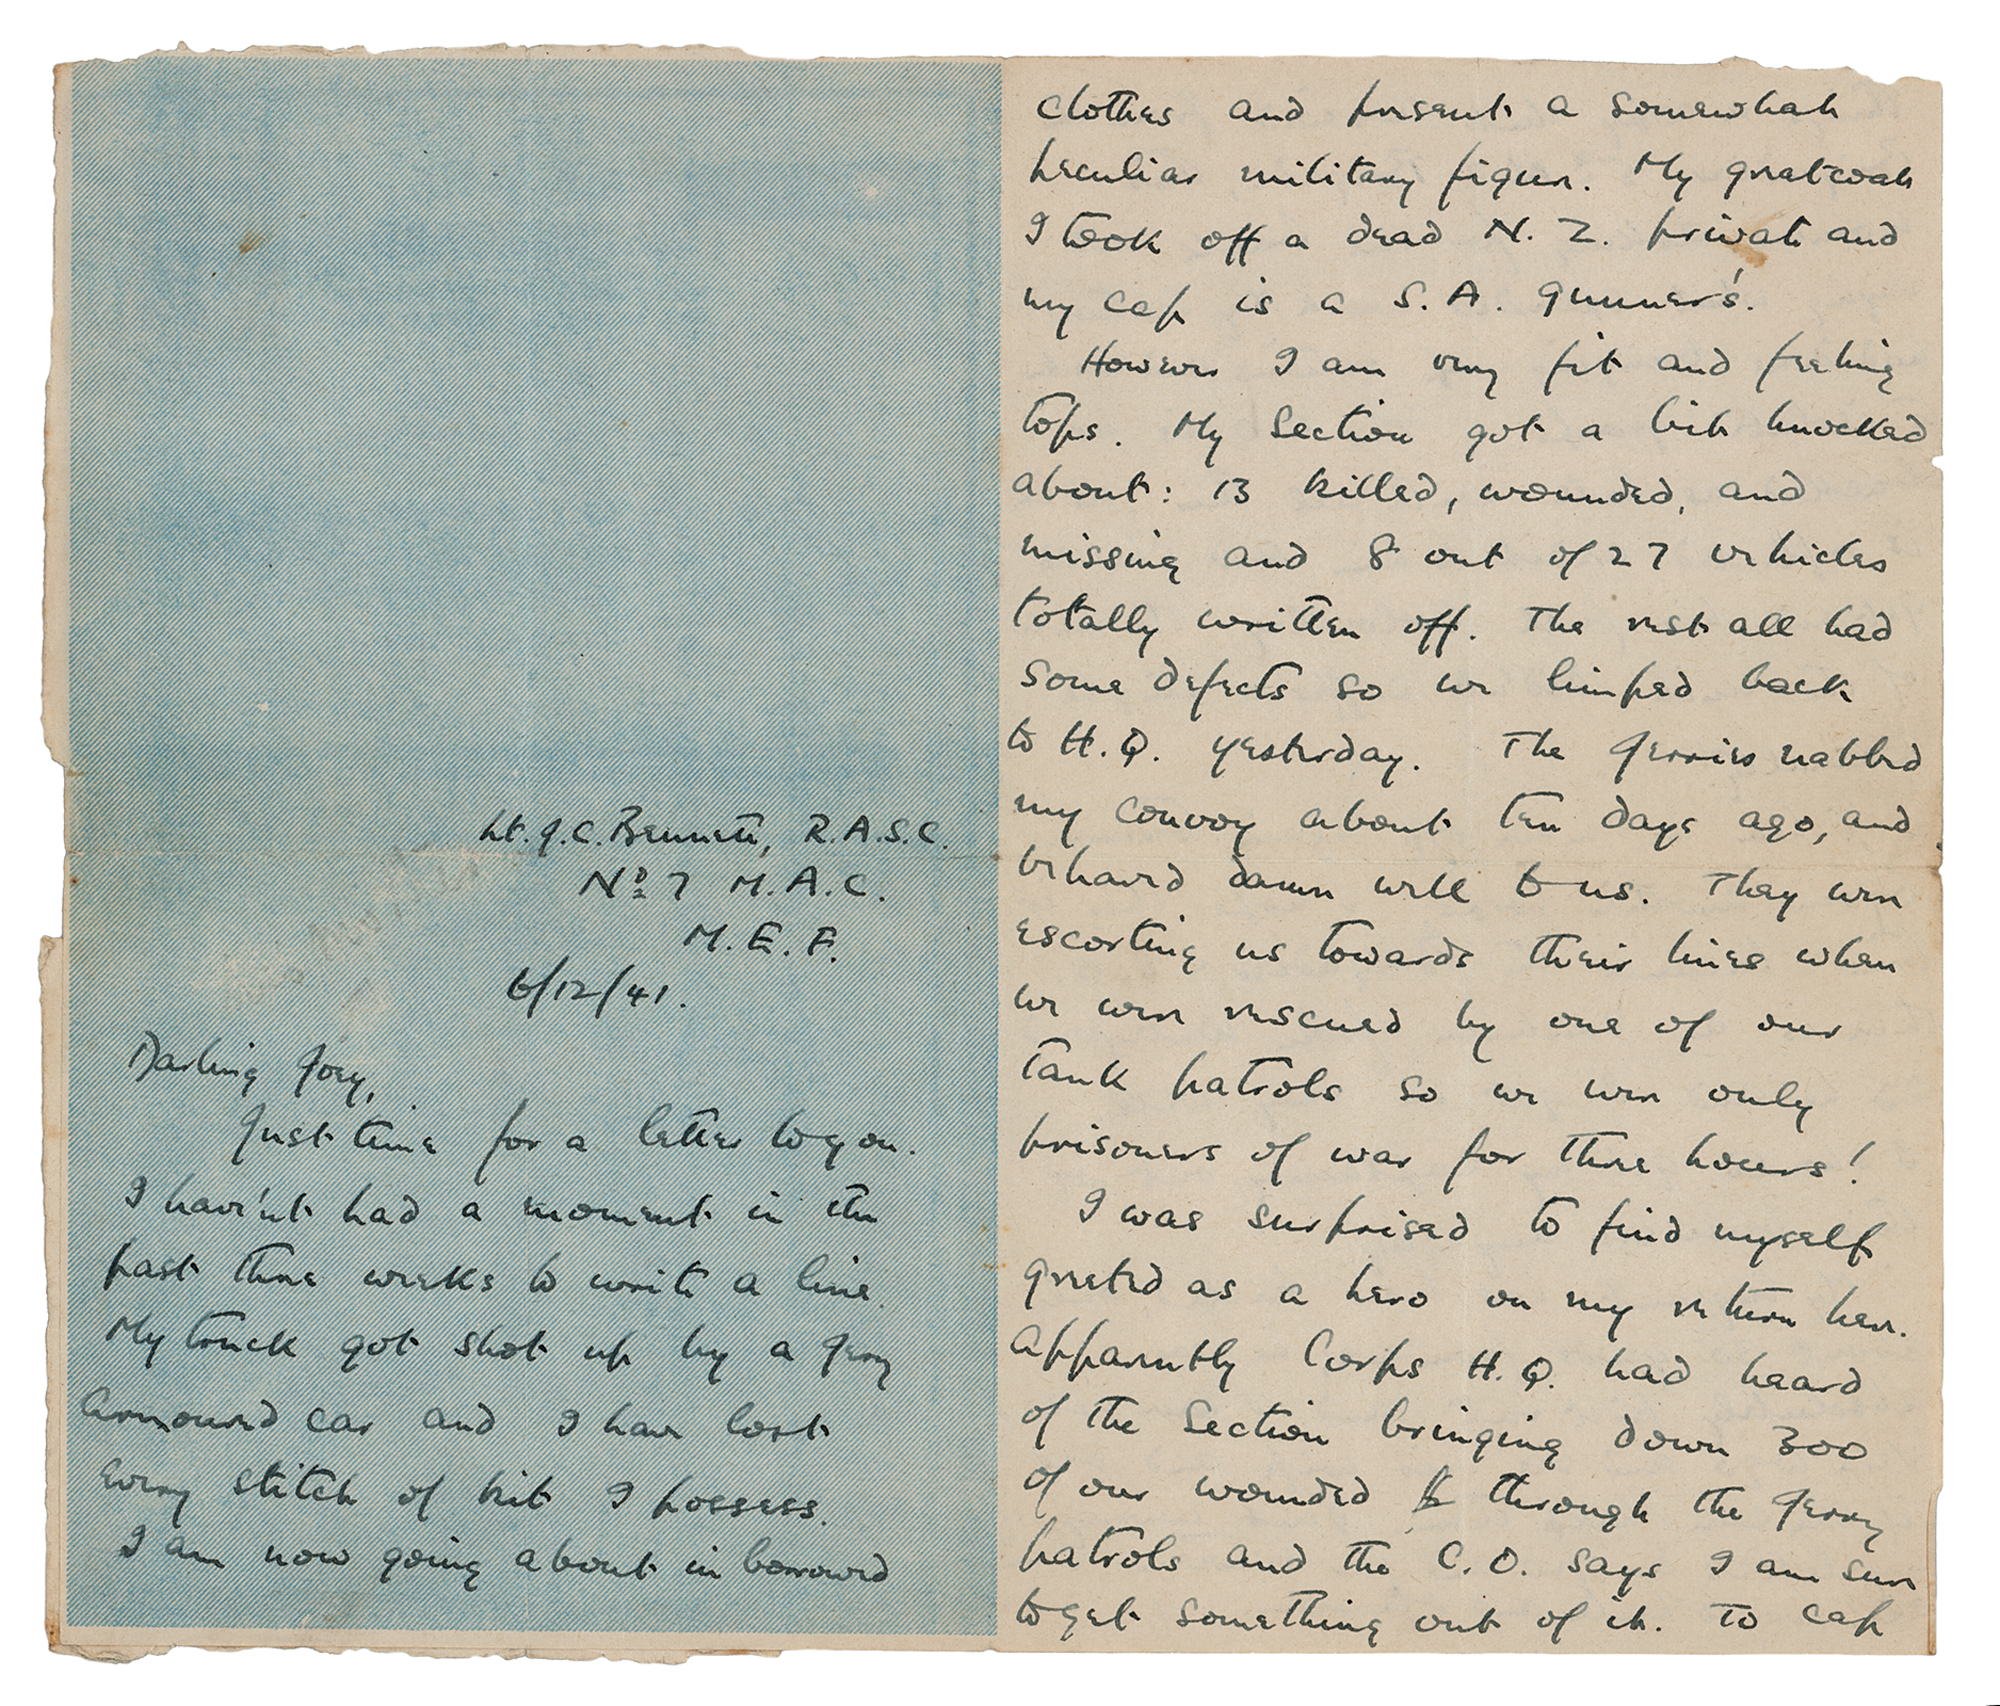 Lt. J. C. Bennett, R.A.S.C.
No 7 M.A.C.
M.E.F.
6/12/41.
Darling Joey,
Just time for a letter to you.
I hav'nt had a moment in the
past three weeks to write a line.
My truck got shot up by a Jerry
armoured car and I have lost
every stitch of kit I possess.
I am now going about in borrowed
clothes and present a somewhat
peculiar military figure. My greatcoat
I took off a dead N.Z. private and
my cap is a S.A. gunner's.
However I am very fit and feeling
tops. My Section got a bit knocked
about: 13 killed, wounded, and
missing and 8 out of 27 vehicles
totally written off. The rest all had
some defects so we limped back
to H.Q. yesterday. The Jerries nabbed
my convoy about ten days ago, and
behaved damn well to us. They were
escorting us towards their lines when
we were rescued by one of our
tank patrols so we were only
prisoners of war for three hours!
I was surprised to find myself
greeted as a hero on my return here.
Apparently Corps H.Q. had heard
of the Section bringing down 300
of our wounded through the Jerry
patrols and the C.O. says I am sure
to get something out of it. To cap